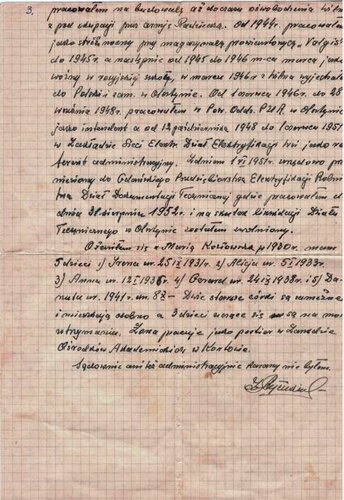 3.
pracowałem na budowach aż do czasu oswobodzenia
z pod okupacji przez armję Radziecką. Od 1944r. pracowałem
jako stróż nocny przy magazynach "Wołgis"
do 1945r. a następnie od 1945 do 1946 m-ca marca, jako
woźny w rosyjskiej szkole, w marcu 1946r z Wilna wyjechałem
do Polski i zam. w Olsztynie. Od 1 czerwca 1946r. do 28
września 1948r. pracowałem w Pow. Oddz. P.Z.U.W. w Olsztynie
jako intendent a od 12 października 1948 do 1 czerwca 1951
w Zakładzie Sieci Elektr. Dział Elektryfikacji też jako re-
ferent administracyjny. Z dniem 1 VI 1951r. urzędowo prze-
niesiony do Gdańskiego Przedsiębiorstwa Elektryfikacji Rolnic-
twa Dział Dokumentacji Technicznej gdzie pracowałem do
dnia 31 sierpnia 1952r. i na skutek likwidacji Działu
Technicznego w Olsztynie zostałem zwolniony.
Ożeniłem się z Marią Kozłowską w 1930r. mam
5 dzieci 1) Irena ur. 25 IX 1931r. 2) Alicja ur. 5 VI 1933r.
3) Anna ur. 12 I 1936r. 4) ur. 24 IX 1938r. i 5) Da-
nuta ur. 1941r. Dwie starsze córki są zamężne
i mieszkają osobno a 3 dzieci uczące się są na moim
utrzymaniu. Żona pracuje jako portier w Zarządzie
Ośrodków Akademickich w Kortowie.
Sądownie ani też administracyjnie karany nie byłem.